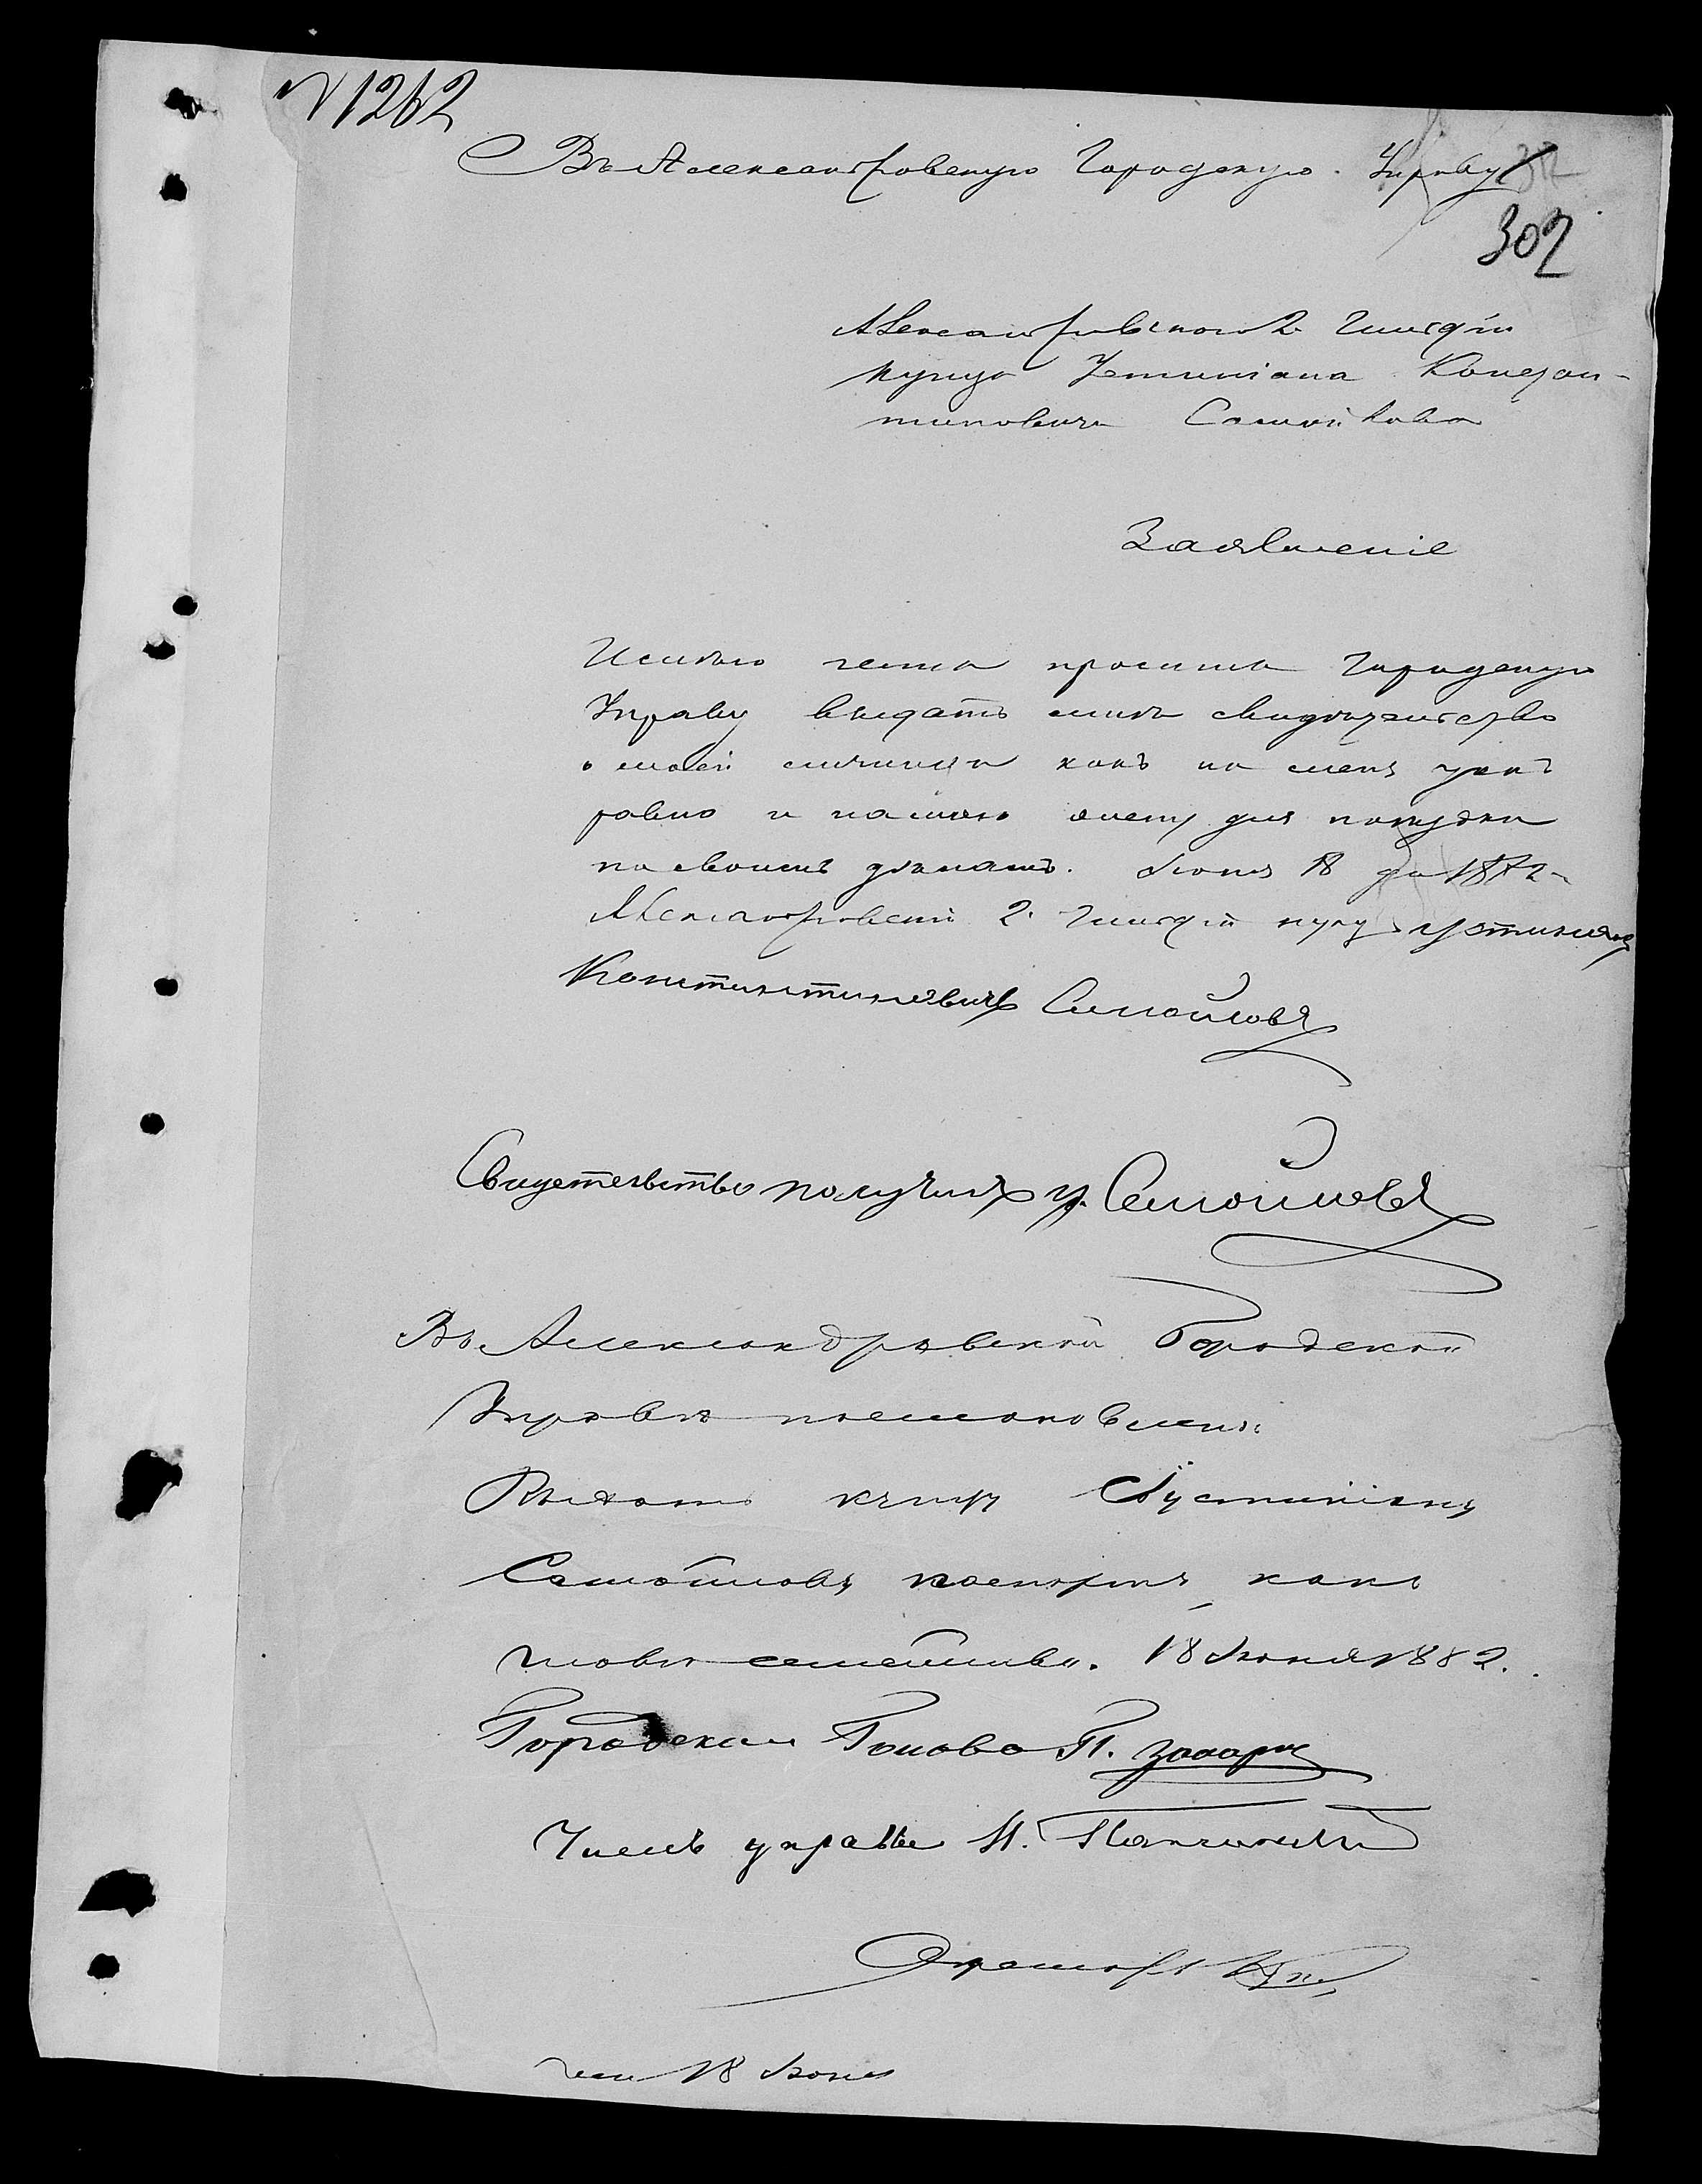 N 1262
Въ Александровскую Городскую Управу
302
Александровскаго 2 Гильдіи
купца Устиніана Констан-
тиновича Самойлова
Заявленіе
честь просить Городскую
Управу выдать мнѣ свидѣтельство
о моей личности какъ на меня
равно и на мою для
по своимъ дѣламъ. Іюня 18 дня 1882
Александровскій 2 Гильдіи купецъ Устиніанъ
Константиновичъ Самойловъ
Свидетельство получилъ У. Самойловъ
Въ Александровской Городской
Управѣ постановлено:
Выдать купцу Іустиніану
Самойлову паспортъ, какъ
семейства. 18 Іюня 1882.
Городской Голова П. Захарі
Членъ управы
18 Іюня